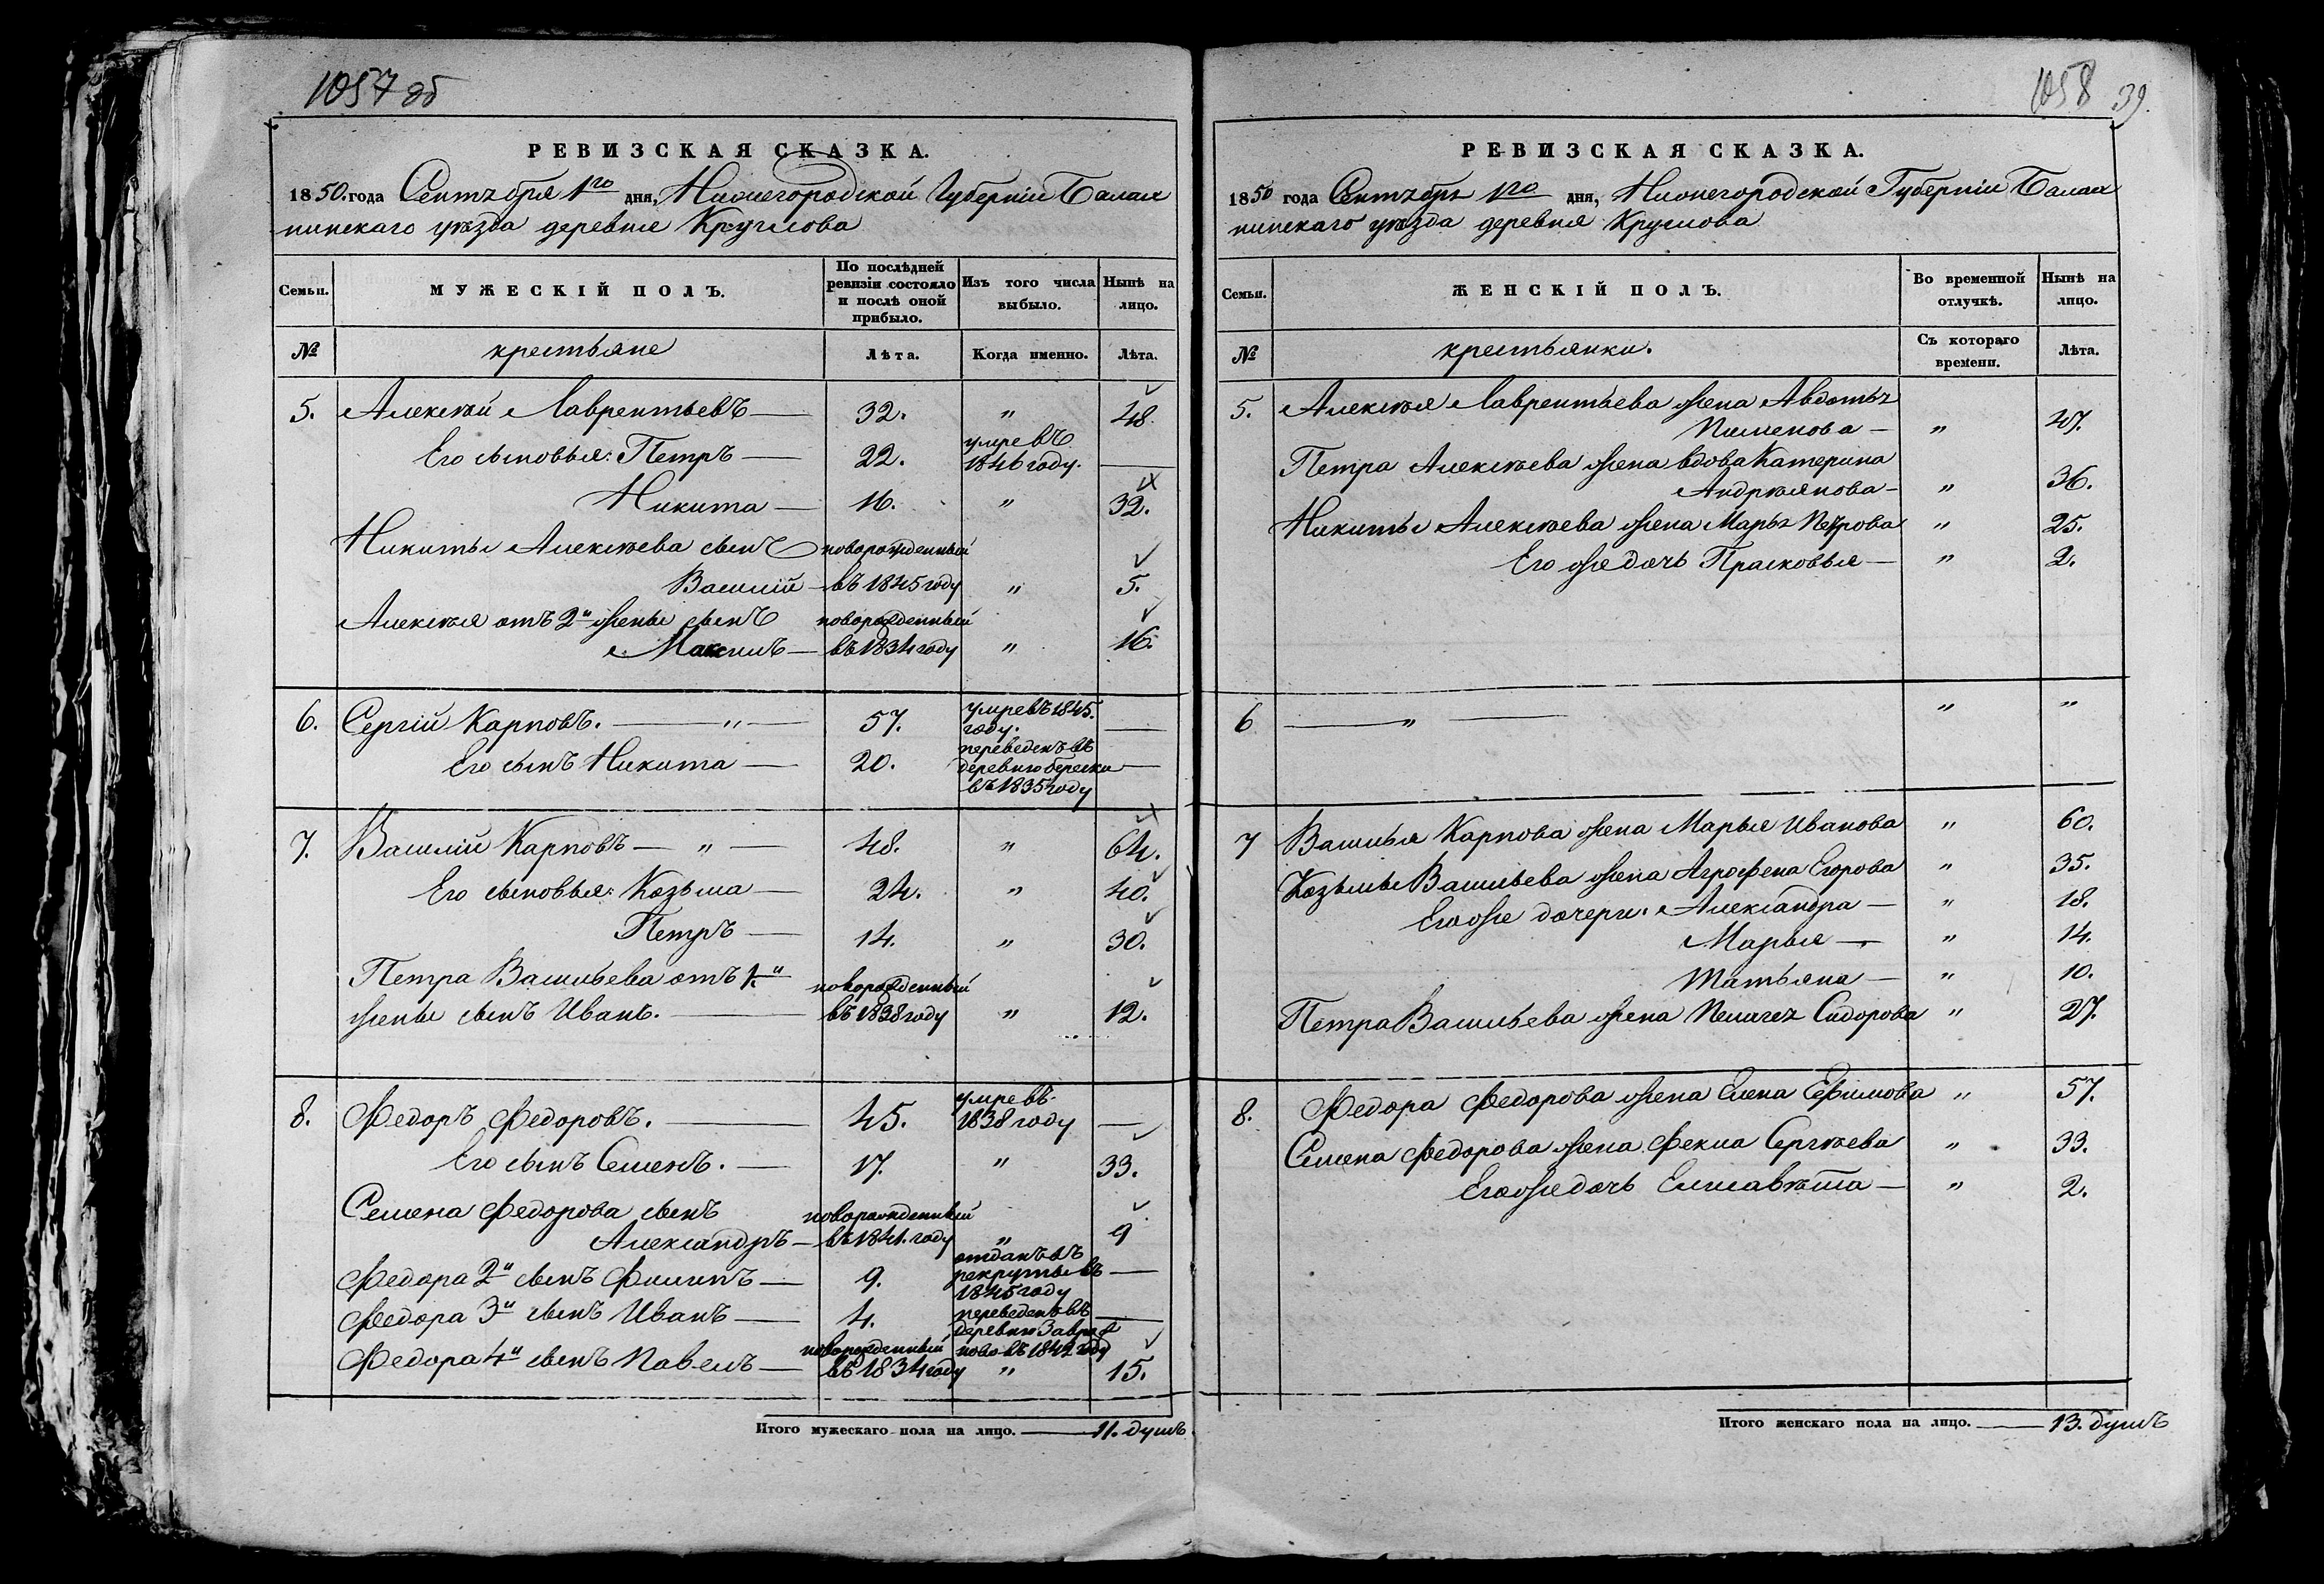 1057 об
РЕВИЗСКАЯ СКАЗКА.
1850. года Сентября 1го дня, Нижегородской Губерніи Балах
нинскаго уѣзда деревни Круглова
Семьи. МУЖЕСКІЙ ПОЛЪ. По послѣдней ревизіи состояло и послѣ оной прибыло. Изъ того числа выбыло. Нынѣ на лицо.
№ крестьяне Лѣта. Когда именно. Лѣта.
5. Алексѣй Лаврентьевъ — 32. „ 48
Его сыновья: Петръ — 22. умре въ 1846 году. —
Никита — 16. „ 32.
Никиты Алексѣева сынъ новорожденный
Василій — въ 1845 году „ 5.
Алексѣя отъ 2й жены сынъ новорожденный
Максимъ — въ 1834 году „ 16.
6. Сергій Карповъ. — „ — 57. умре въ 1845. году. —
Его сынъ Никита — 20. переведенъ въ деревню Берески въ 1835 году —
7. Василій Карповъ — „ — 48. „ 64.
Его сыновья: Козьма — 24. „ 40.
Петръ — 14. „ 30.
Петра Васильева отъ 1.й новорожденный
жены сынъ Иванъ. — въ 1838 году „ 12.
8. Федоръ Федоровъ. — 45. умре въ 1838 году —
Его сынъ Семенъ. — 17. „ 33.
Семена Федорова сынъ новорожденный
Александръ — въ 1841. году „ 9
Федора 2й сынъ Филипъ — 9. отданъ въ рекруты въ 1845 году —
Федора 3й сынъ Иванъ — 4. переведенъ въ деревню —
Федора 4й сынъ Павелъ — новорожденный въ 1834 году „ 15.
Итого мужескаго пола на лицо. — 11. душъ.
1058 39.
РЕВИЗСКАЯ СКАЗКА.
1850 года Сентябрь 1го дня, Нижегородской Губерніи Балах
нинскаго уѣзда деревня Круглова
Семьи. ЖЕНСКІЙ ПОЛЪ. Во временной отлучкѣ. Нынѣ на лицо.
№ крестьянки. Съ котораго времени. Лѣта.
5. Алексѣя Лаврентьева жена Авдотья
Пименова — „ 47.
Петра Алексѣева жена вдова Катерина
Андреянова — „ 36.
Никиты Алексѣева жена Марья Петрова „ 25.
Его же дочь Прасковья — „ 2.
6 — „ — „ „
7 Василья Карпова жена Марья Иванова „ 60.
Козьмы Васильева жена Агрофена Егорова „ 35.
Его же дочери: Александра — „ 18.
Марья — „ 14.
Татьяна — „ 10.
Петра Васильева жена Пелагея Сидорова „ 27.
8. Федора Федорова жена Елена Ефимова „ 57.
Семена Федорова жена Фекла Сергѣева „ 33.
Его же дочь Елисавѣта — „ 2.
Итого женскаго пола на лицо. — 13. душъ